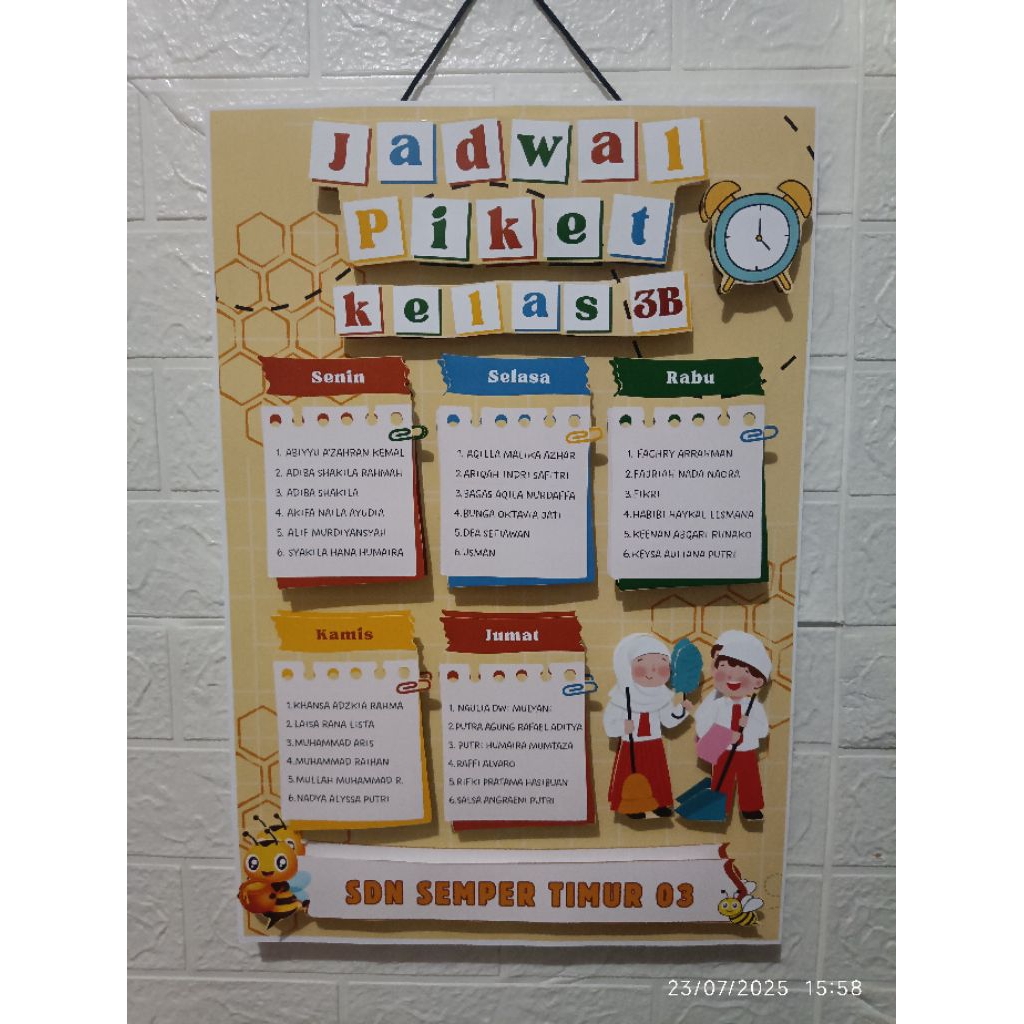 Jadwal
Piket
kelas 3B
Senin
1. ABIYYU A'ZAHRAN KEMAL
2. ADIBA SHAKILA RAHMAH
3. ADIBA SHAKILA
4. AKIFA NAILA AYUDIA
5. ALIF MURDIYANSYAH
6. SYAKILA HANA HUMAIRA
Selasa
1. AQILLA MALIKA AZHAR
2. ARIQAH INDRI SAFITRI
3. BAGAS AQILA NURDAFFA
4. BUNGA OKTAVIA JATI
5. DEA SETIAWAN
6. USMAN
Rabu
1. FACHRY ARRAHMAN
2. FAJRIAH NADA NAORA
3. FIKRI
4. HABIBI HAYKAL LISMANA
5. KEENAN ABQARI RUNAKO
6. KEYSA AULIANA PUTRI
Kamis
1. KHANSA ADZKIA RAHMA
2. LAISA RANA LISTA
3. MUHAMMAD ARIS
4. MUHAMMAD RAIHAN
5. MULLAH MUHAMMAD R.
6. NADYA ALYSSA PUTRI
Jumat
1. NAULIA DWI MULYANI
2. PUTRA AGUNG RAFAEL ADITYA
3. PUTRI HUMAIRA MUMTAZA
4. RAFFI ALVARO
5. RIFKI PRATAMA HASIBUAN
6. SALSA ANGRAENI PUTRI
SDN SEMPER TIMUR 03
23/07/2025 15:58